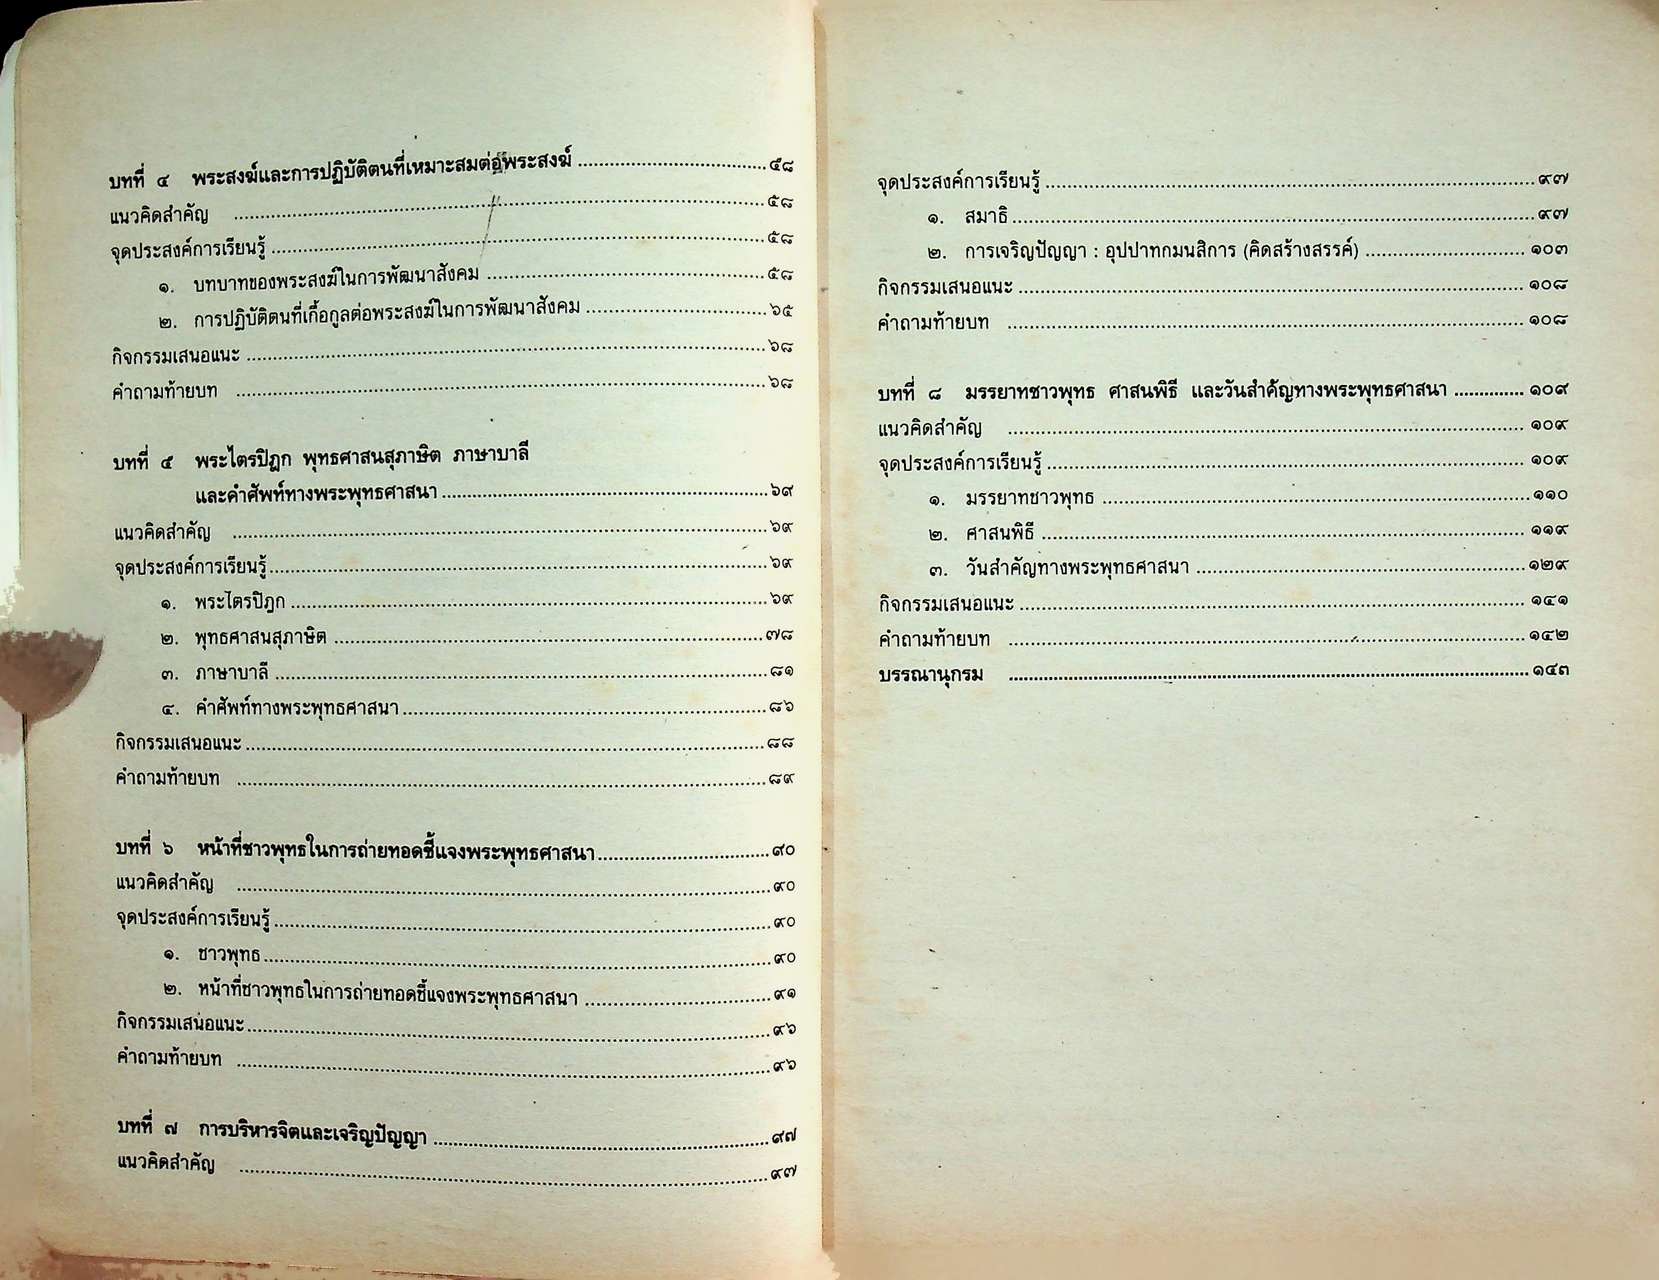 บทที่ ๔ พระสงฆ์และการปฏิบัติตนที่เหมาะสมต่อพระสงฆ์ ........ ๕๘
แนวคิดสำคัญ ........ ๕๘
จุดประสงค์การเรียนรู้ ........ ๕๘
๑. บทบาทของพระสงฆ์ในการพัฒนาสังคม ........ ๕๘
๒. การปฏิบัติตนที่เกื้อกูลต่อพระสงฆ์ในการพัฒนาสังคม ........ ๖๕
กิจกรรมเสนอแนะ ........ ๖๘
คำถามท้ายบท ........ ๖๘
บทที่ ๕ พระไตรปิฎก พุทธศาสนสุภาษิต ภาษาบาลี
และคำศัพท์ทางพระพุทธศาสนา ........ ๖๙
แนวคิดสำคัญ ........ ๖๙
จุดประสงค์การเรียนรู้ ........ ๖๙
๑. พระไตรปิฎก ........ ๖๙
๒. พุทธศาสนสุภาษิต ........ ๗๘
๓. ภาษาบาลี ........ ๘๑
๔. คำศัพท์ทางพระพุทธศาสนา ........ ๘๖
กิจกรรมเสนอแนะ ........ ๘๘
คำถามท้ายบท ........ ๘๙
บทที่ ๖ หน้าที่ชาวพุทธในการถ่ายทอดชี้แจงพระพุทธศาสนา ........ ๙๐
แนวคิดสำคัญ ........ ๙๐
จุดประสงค์การเรียนรู้ ........ ๙๐
๑. ชาวพุทธ ........ ๙๐
๒. หน้าที่ชาวพุทธในการถ่ายทอดชี้แจงพระพุทธศาสนา ........ ๙๑
กิจกรรมเสนอแนะ ........ ๙๖
คำถามท้ายบท ........ ๙๖
บทที่ ๗ การบริหารจิตและเจริญปัญญา ........ ๙๗
แนวคิดสำคัญ ........ ๙๗
จุดประสงค์การเรียนรู้ ........ ๙๗
๑. สมาธิ ........ ๙๗
๒. การเจริญปัญญา : อุปปาทกมนสิการ (คิดสร้างสรรค์) ........ ๑๐๓
กิจกรรมเสนอแนะ ........ ๑๐๘
คำถามท้ายบท ........ ๑๐๘
บทที่ ๘ มรรยาทชาวพุทธ ศาสนพิธี และวันสำคัญทางพระพุทธศาสนา ........ ๑๐๙
แนวคิดสำคัญ ........ ๑๐๙
จุดประสงค์การเรียนรู้ ........ ๑๐๙
๑. มรรยาทชาวพุทธ ........ ๑๑๐
๒. ศาสนพิธี ........ ๑๑๙
๓. วันสำคัญทางพระพุทธศาสนา ........ ๑๒๙
กิจกรรมเสนอแนะ ........ ๑๔๑
คำถามท้ายบท ........ ๑๔๒
บรรณานุกรม ........ ๑๔๓